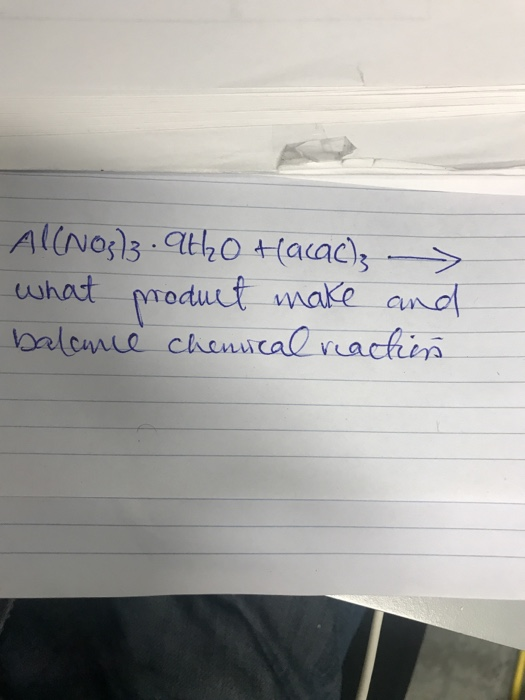 Al(NO3)3 · 9H2O + (acac)3 ⟶
what product make and
balance chemical reaction